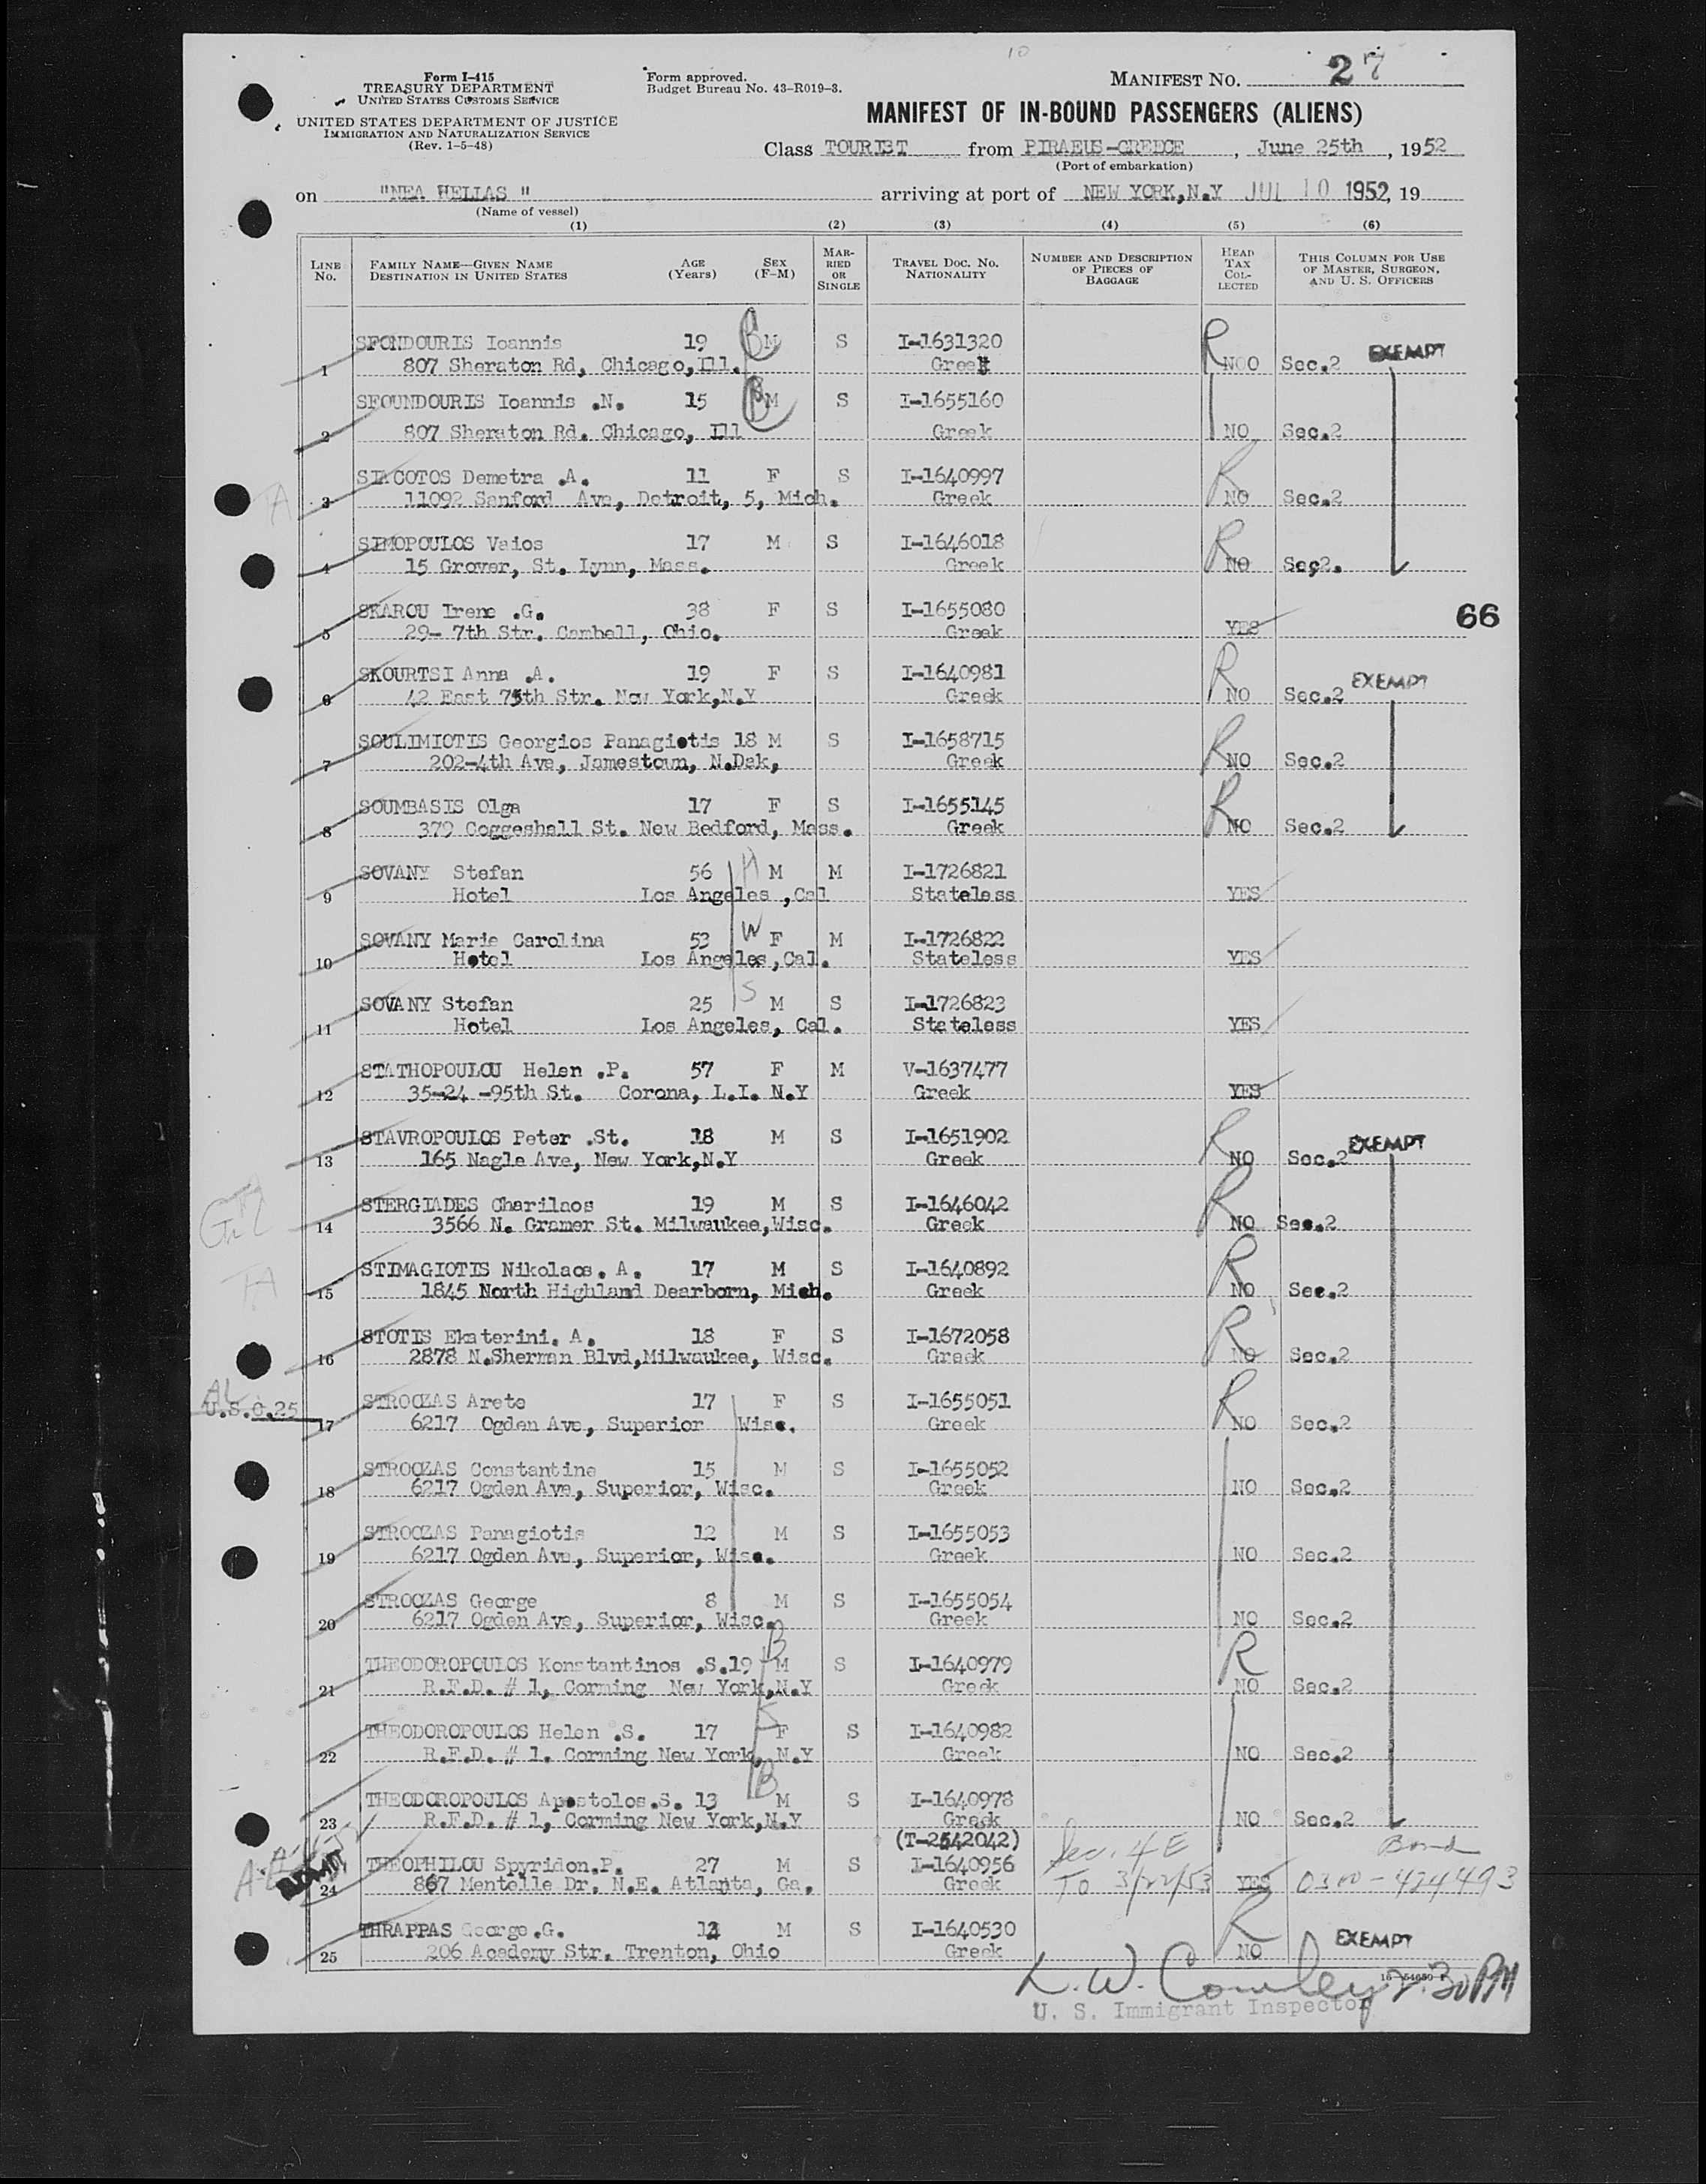 10
Form I-415
TREASURY DEPARTMENT
UNITED STATES CUSTOMS SERVICE
UNITED STATES DEPARTMENT OF JUSTICE
IMMIGRATION AND NATURALIZATION SERVICE
(Rev. 1-5-48)
Form approved.
Budget Bureau No. 43-R019-3.
MANIFEST NO. 27
MANIFEST OF IN-BOUND PASSENGERS (ALIENS)
Class TOURIST from PIRAEUS-GREECE, June 25th, 1952
(Port of embarkation)
on "NEA HELLAS" arriving at port of NEW YORK,N.Y JUL 10 1952, 19
(Name of vessel)
(1) (2) (3) (4) (5) (6)
LINE No. FAMILY NAME—GIVEN NAME DESTINATION IN UNITED STATES AGE (Years) SEX (F-M) MARRIED OR SINGLE TRAVEL DOC. NO. NATIONALITY NUMBER AND DESCRIPTION OF PIECES OF BAGGAGE HEAD TAX COLLECTED THIS COLUMN FOR USE OF MASTER, SURGEON, AND U. S. OFFICERS
SFONDOURIS Ioannis 19 B M S I-1631320 R EXEMPT
1 807 Sheraton Rd, Chicago,Ill. Greek NOO Sec.2
SFOUNDOURIS Ioannis .N. 15 B M S I-1655160
2 807 Sheraton Rd. Chicago, Ill Greek NO Sec.2
SIACOTOS Demetra .A. 11 F S I-1640997 R
3 11092 Sanford Ave, Detroit, 5, Mich. Greek NO Sec.2
SIMOPOULOS Vaios 17 M S I-1646018 R
4 15 Grover, St. Lynn, Mass. Greek NO Sec2.
SKAROU Irene .G. 38 F S I-1655080 66
5 29- 7th Str. Cambell, Ohio. Greek YES
SKOURTSI Anna .A. 19 F S I-1640981 R EXEMPT
6 42 East 75th Str. New York,N.Y Greek NO Sec.2
SOULIMIOTIS Georgios Panagiotis 18 M S I-1658715 R
7 202-4th Ave, Jamestown, N.Dak, Greek NO Sec.2
SOUMBASIS Olga 17 F S I-1655145 R
8 379 Coggeshall St. New Bedford, Mass. Greek NO Sec.2
SOVANY Stefan 56 H M M I-1726821
9 Hotel Los Angeles ,Cal Stateless YES
SOVANY Marie Carolina 53 W F M I-1726822
10 Hotel Los Angeles,Cal. Stateless YES
SOVANY Stefan 25 S M S I-1726823
11 Hotel Los Angeles, Cal. Stateless YES
STATHOPOULOU Helen .P. 57 F M V-1637477
12 35-24 -95th St. Corona, L.I. N.Y Greek YES
STAVROPOULOS Peter .St. 18 M S I-1651902 R EXEMPT
13 165 Nagle Ave, New York,N.Y Greek NO Sec.2
STERGIADES Charilaos 19 M S I-1646042 R
14 3566 N. Gramer St. Milwaukee,Wisc. Greek NO Sec.2
STIMAGIOTIS Nikolaos. A. 17 M S I-1640892 R
15 1845 North Highland Dearborn, Mich. Greek NO Sec.2
STOTIS Ekaterini. A. 18 F S I-1672058 R
16 2878 N.Sherman Blvd,Milwaukee, Wisc. Greek NO Sec.2
STROOZAS Arete 17 F S I-1655051 R
U.S.C.25 17 6217 Ogden Ave, Superior Wisc. Greek NO Sec.2
STROOZAS Constantine 15 M S I-1655052
18 6217 Ogden Ave, Superior, Wisc. Greek NO Sec.2
STROOZAS Panagiotis 12 M S I-1655053
19 6217 Ogden Ave, Superior, Wisc. Greek NO Sec.2
STROOZAS George 8 M S I-1655054
20 6217 Ogden Ave, Superior, Wisc. Greek NO Sec.2
THEODOROPOULOS Konstantinos .S.19 B M S I-1640979 R
21 R.F.D. # 1, Corming New York,N.Y Greek NO Sec.2
THEODOROPOULOS Helen .S. 17 S F S I-1640982
22 R.F.D. # 1. Corming New York, N.Y Greek NO Sec.2
THEODOROPOULOS Apostolos.S. 13 B M S I-1640978
23 R.F.D. # 1, Corming New York,N.Y Greek NO Sec.2
(T-2542042) Sec. 4 E Bond
THEOPHILOU Spyridon.P. 27 M S I-1640956
24 867 Mentelle Dr. N.E. Atlanta, Ga. Greek To 3/22/53 YES 0300-424493
THRAPPAS George .G. 12 M S I-1640530 R EXEMPT
25 206 Academy Str. Trenton, Ohio Greek NO
16—54650-1
L. W. Cowley 2:30 PM
U. S. Immigrant Inspector